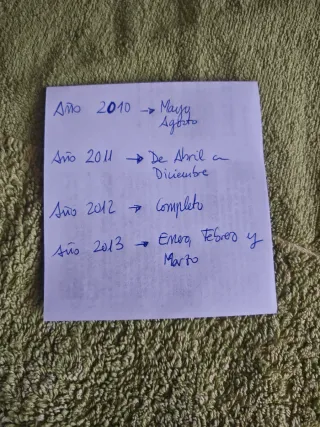 Año 2010 → Mayo
Agosto
Año 2011 → De Abril a
Diciembre
Año 2012 → Completo
Año 2013 → Enero, Febrero y
Marzo